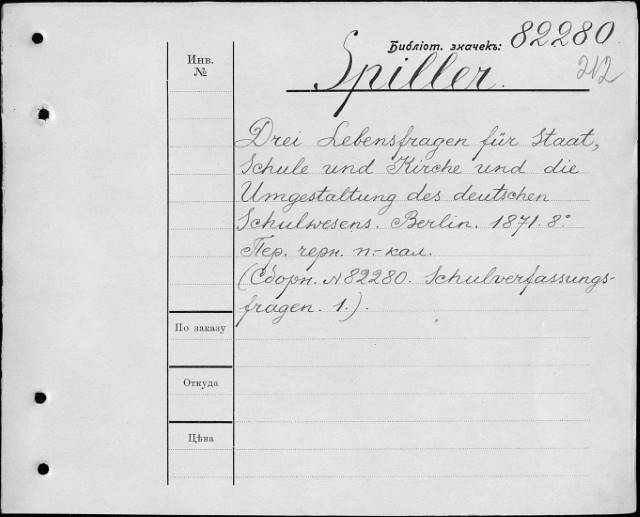 Библіот. значекъ: 82280.
212
Инв.
№
Spiller.
Drei Lebensfragen für Staat,
Schule und Kirche und die
Umgestaltung des deutschen
Schulwesens. Berlin. 1871. 8°
Пер. черн. п.-кал.
(Сборн. №82280. Schulverfassungs-
fragen. 1.).
По заказу
Откуда
Цѣна